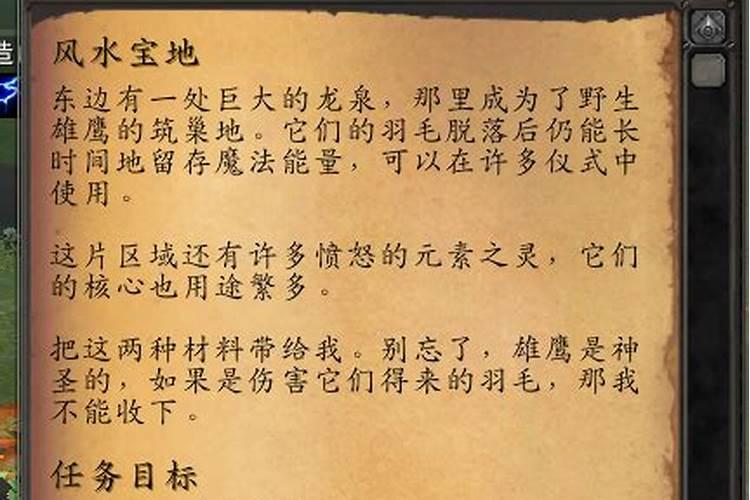 风水宝地
造
东边有一处巨大的龙泉，那里成为了野生
雄鹰的筑巢地。它们的羽毛脱落后仍能长
时间地留存魔法能量，可以在许多仪式中
使用。
这片区域还有许多愤怒的元素之灵，它们
的核心也用途繁多。
把这两种材料带给我。别忘了，雄鹰是神
圣的，如果是伤害它们得来的羽毛，那我
不能收下。
任务目标